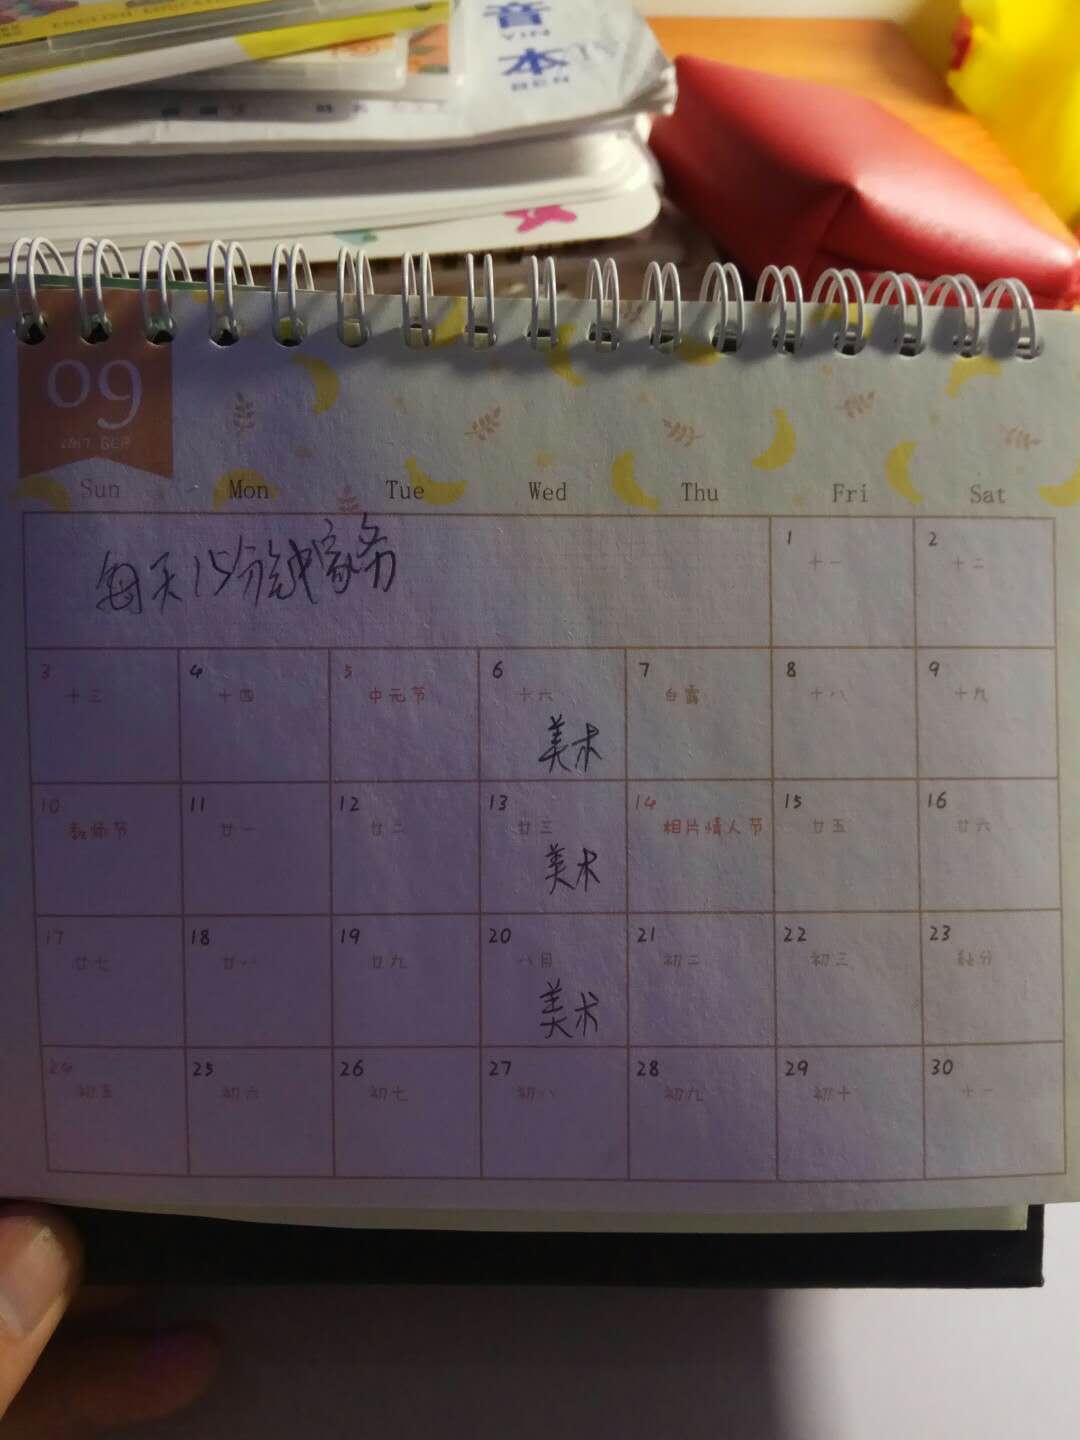 音
YIN
本
BEN
09
2017 SEP
Sun Mon Tue Wed Thu Fri Sat
每天15分钟家务
1 2
十一 十二
3 4 5 6 7 8 9
十三 十四 中元节 十六 白露 十八 十九
美术
10 11 12 13 14 15 16
教师节 廿一 廿二 廿三 相片情人节 廿五 廿六
美术
17 18 19 20 21 22 23
廿七 廿八 廿九 八月 初二 初三 秋分
美术
24 25 26 27 28 29 30
初五 初六 初七 初八 初九 初十 十一